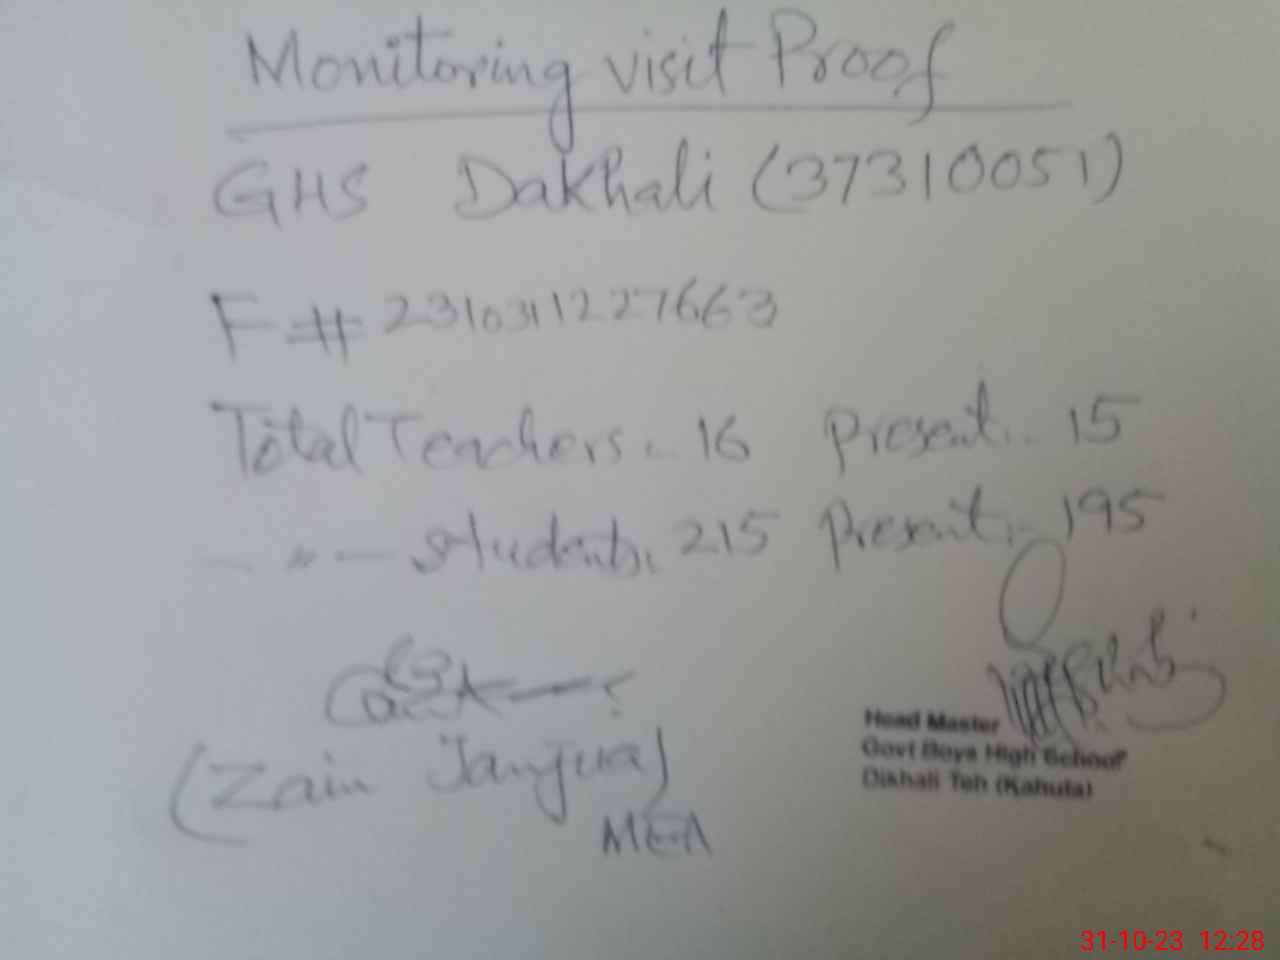 Monitoring visit Proof
GHS Dakhali (37310051)
F # 231031122 7663
Total Teachers. 16 Present.. 15
— " — students. 215 Present. 195
(Zain Janjua)
MEA
Head Master
Govt Boys High School
Dikhali Teh (Kahuta)
31-10-23 12:28